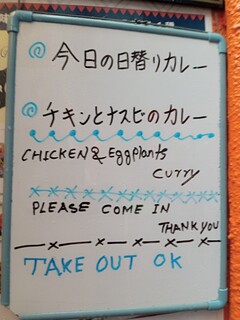 今日の日替りカレー
チキンとナスビのカレー
CHICKEN & Eggplants
Curry
PLEASE COME IN
THANK YOU
TAKE OUT OK